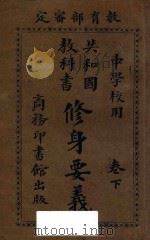 教育部審定
中學校用
共和國
教科書
修身要義
卷下
商務印書館出版